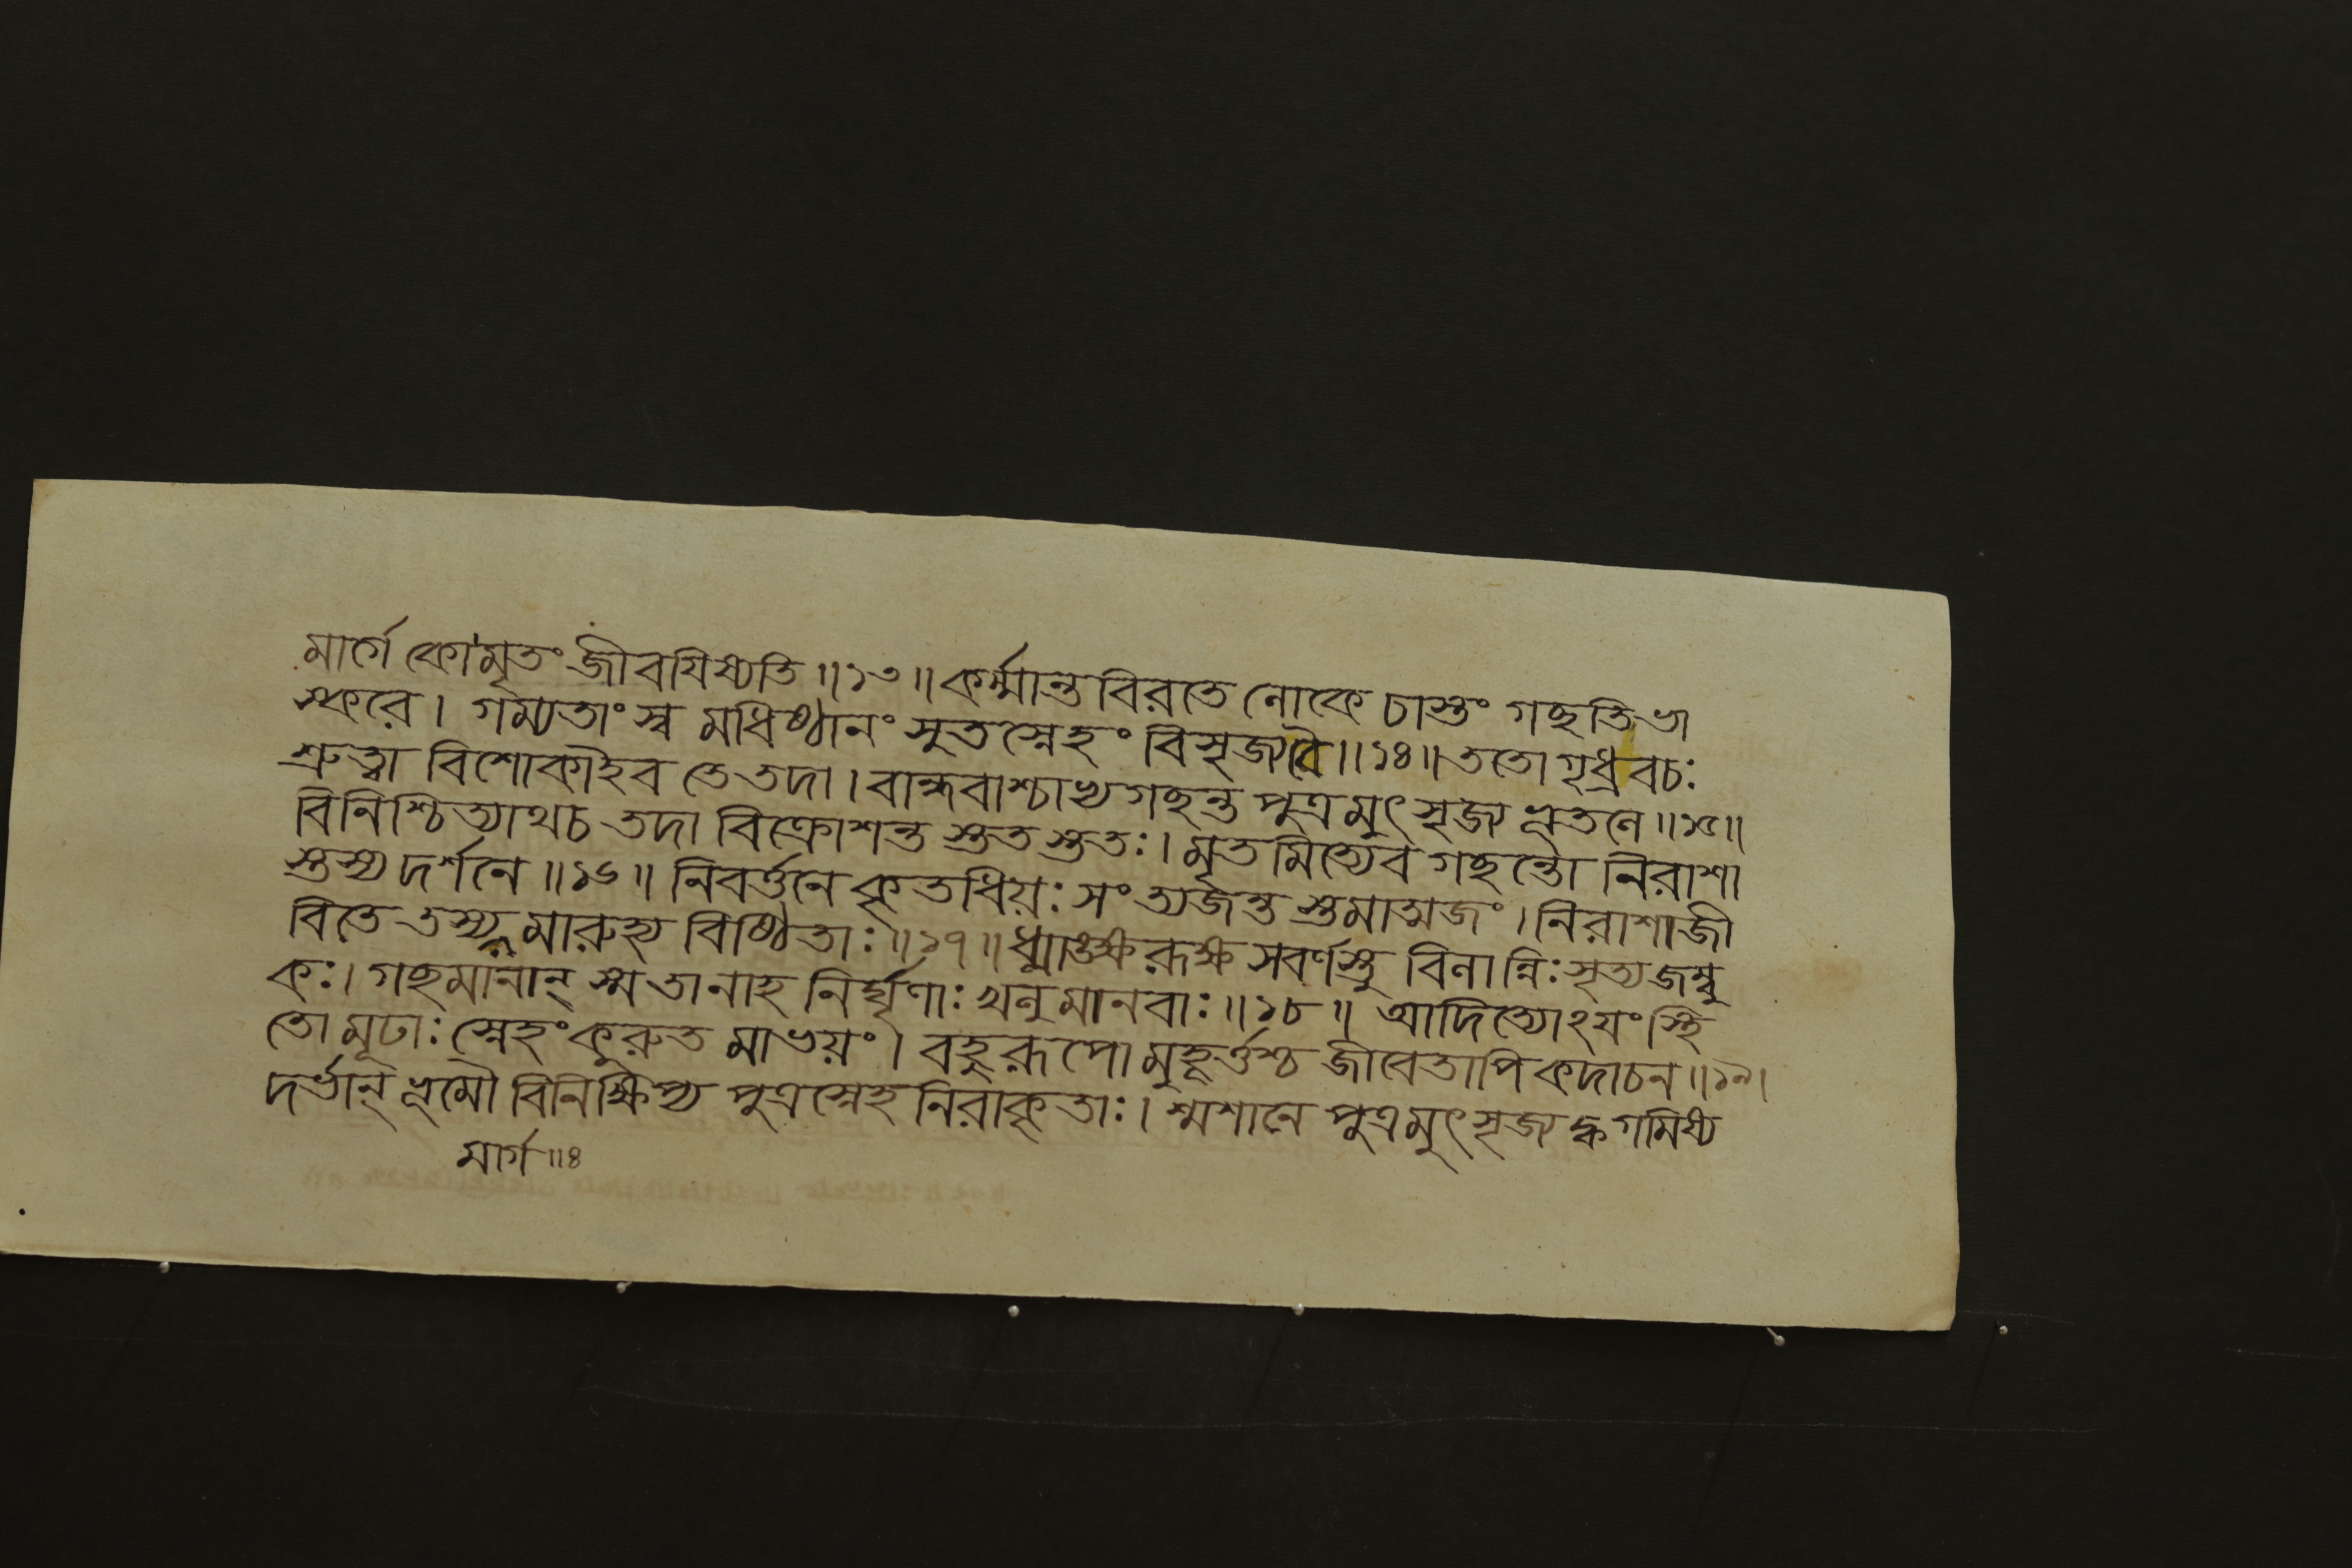 মার্গে কো মৃতং জীবযিষ্যতি ॥১৩॥ কর্ম্মান্ত বিরতে লোকে চাস্তং গচ্ছতি ভা
স্করে। গম্যতাং স্ব মধিষ্ঠানং সুতস্নেহং বিসৃজ্যবৈ ॥১৪॥ ততো গৃধ্রবচঃ
শ্রুত্বা বিশোকাইব তে তদা। বান্ধবাশ্চাভ্যগচ্ছন্ত পুত্রমুৎসৃজ্য ভূতলে ॥১৫॥
বিনিশ্চিত্যাথচ তদা বিক্রোশন্ত স্ততস্ততঃ। মৃতমিত্যেব গচ্ছন্তো নিরাশা
স্তস্য দর্শনে ॥১৬॥ নিবর্ত্তনে কৃতধিয়ঃ সংত্যজন্ত স্তমাত্মজং। নিরাশাজী
বিতে তস্য মারুহ্য বিষ্ঠিতাঃ ॥১৭॥ ধ্মাঙক্ষরূক্ষ সবর্ণস্তু বিলান্নিঃসৃত্য জম্বু
কঃ। গচ্ছমানান্ স্ম তানাহ নির্ঘৃণাঃ খলু মানবাঃ ॥১৮॥ আদিত্যোঽযং স্থি
তো মূঢাঃ স্নেহং কুরুত মাভয়ং। বহুরূপো মুহূর্ত্তশ্চ জীবেতাপি কদাচন ॥১৯।
দর্ভান্ ভূমৌ বিনিক্ষিপ্য পুত্রস্নেহ নিরাকৃতাঃ। শ্মশানে পুত্রমুৎসৃজ্য ক্ব গমিষ্য
মার্গ ॥৪